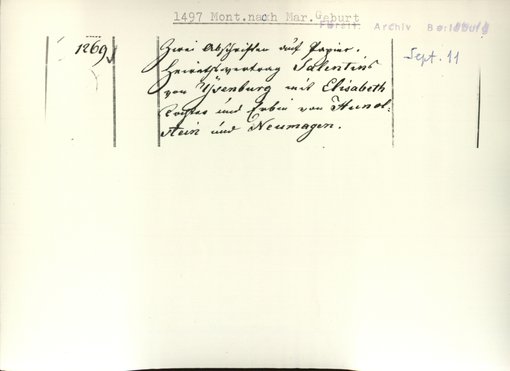 1497 Mont.nach Mar.Geburt
Fürstl. Archiv Berleburg
1269
Zwei Abschriften auf Papier.
Heirathsvertrag Salentins
von Ysenburg mit Elisabeth
Tochter und Erbin von Hunol-
stein und Neumagen.
Sept. 11